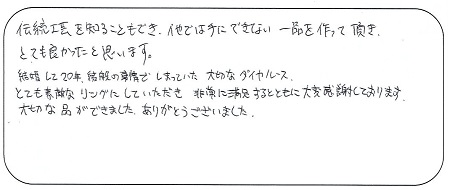 伝統工芸を知ることもでき、他では手にできない一品を作って頂き、
とても良かったと思います。
結婚して20年、 しまっていた 大切なダイヤルース、
とても素敵なリングにしていただき 非常に満足するとともに大変感謝しております。
大切な品ができました。ありがとうございました。